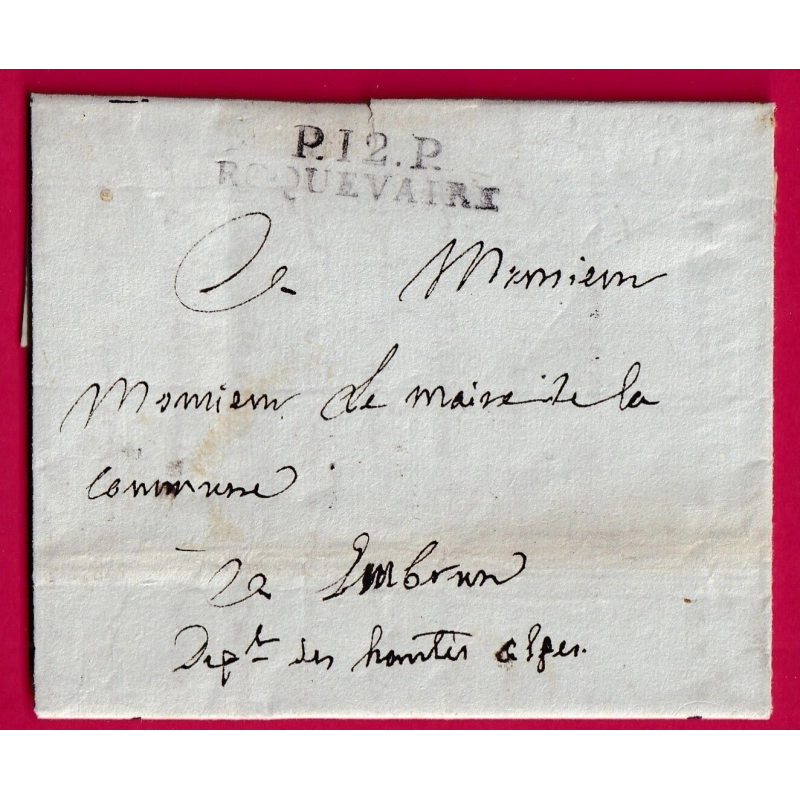 P.12.P.
ROQUEVAIRE
A Monsieur
Monsieur Le maire de la
commune
de Embrun
Dept. des hautes alpes.